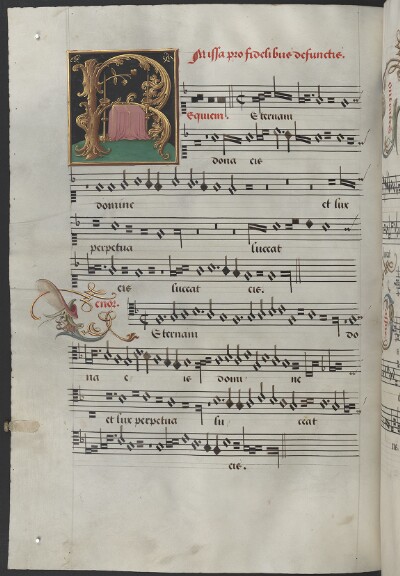 Missa pro fidelibus defunctis.
Requiem. Eternam
dona eis
domine et lux
perpetua luccat
eis luccat eis.
Tenor.
Eternam do
na e is domi ne
et lux perpetua lu ceat
eis.